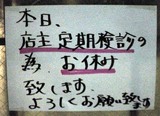 本日、
店主定期検診の
為お休み
致します。
よろしくお願い致します